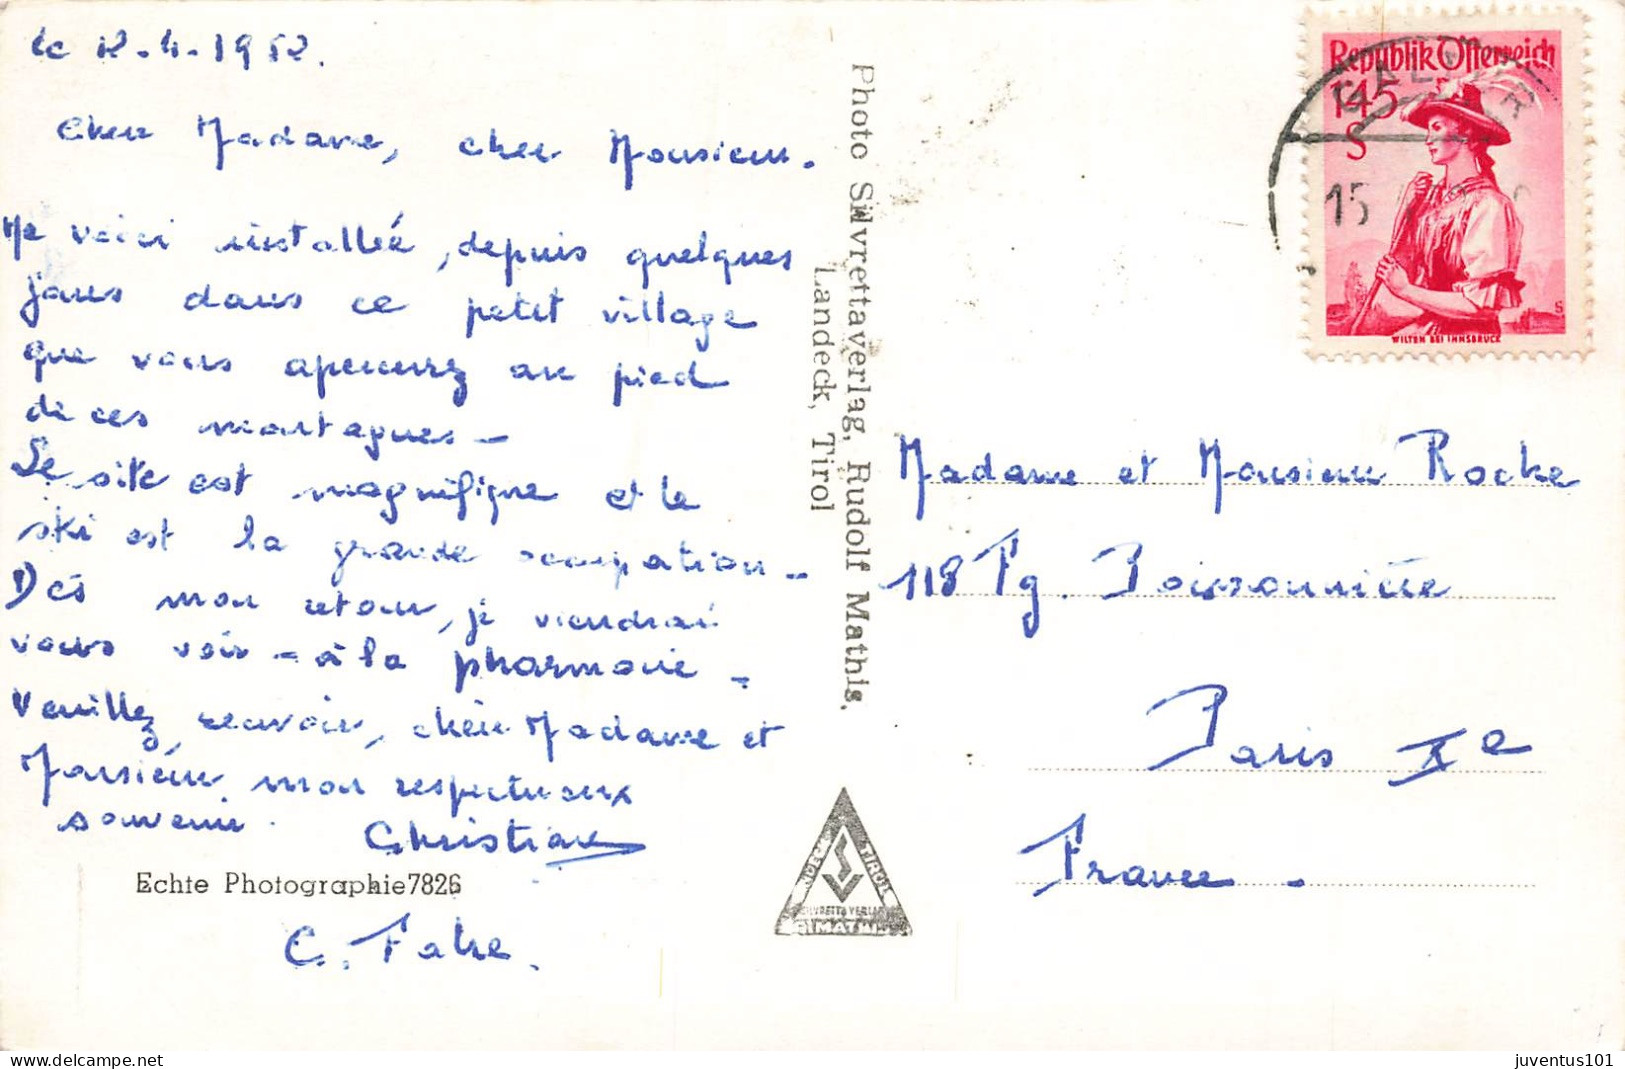 le 12-4-1952.
Cher Madame, cher Monsieur.
Me voici installée, depuis quelques
jours dans ce petit village
que vous apercevez au pied
de ces montagnes -
Le site est magnifique et le
ski est la grande occupation -
Dès mon retour, je viendrai
vous voir - à la pharmacie -
Veuillez recevoir, chère Madame et
Monsieur mon respectueux
souvenir. Christiane
Echte Photographie 7826
C. Fabre.
Photo Silvrettaverlag, Rudolf Mathis,
Landeck, Tirol
LANDECK TIROL
SILVRETTA VERLAG
R. MATHIS
Republik Österreich
1·45
S
WILTEN BEI INNSBRUCK
S
GALTÜR
15
Madame et Monsieur Roche
118 Fg. Poissonnière
Paris Xe
France -
juventus101
www.delcampe.net